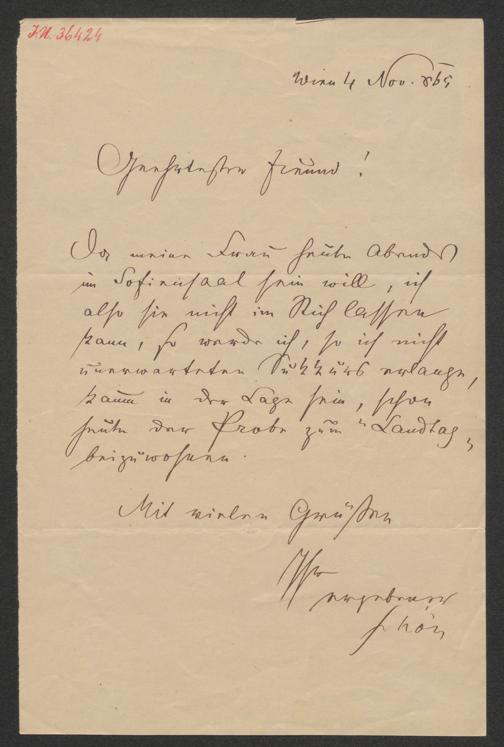 I.N. 36424
Wien 4 Nov. 869
Geehrtester Freund!
Da meine Frau heute Abends
im Sofiensaal sein will, ich
also sie nicht im Stich lassen
kann, so werde ich, so ich nicht
unerwarteten Sukkurs erlange,
kaum in der Lage sein, schon
heute der Probe zum "Landtag"
beizuwohnen.
Mit vielen Grüßen
Ihr
ergebener